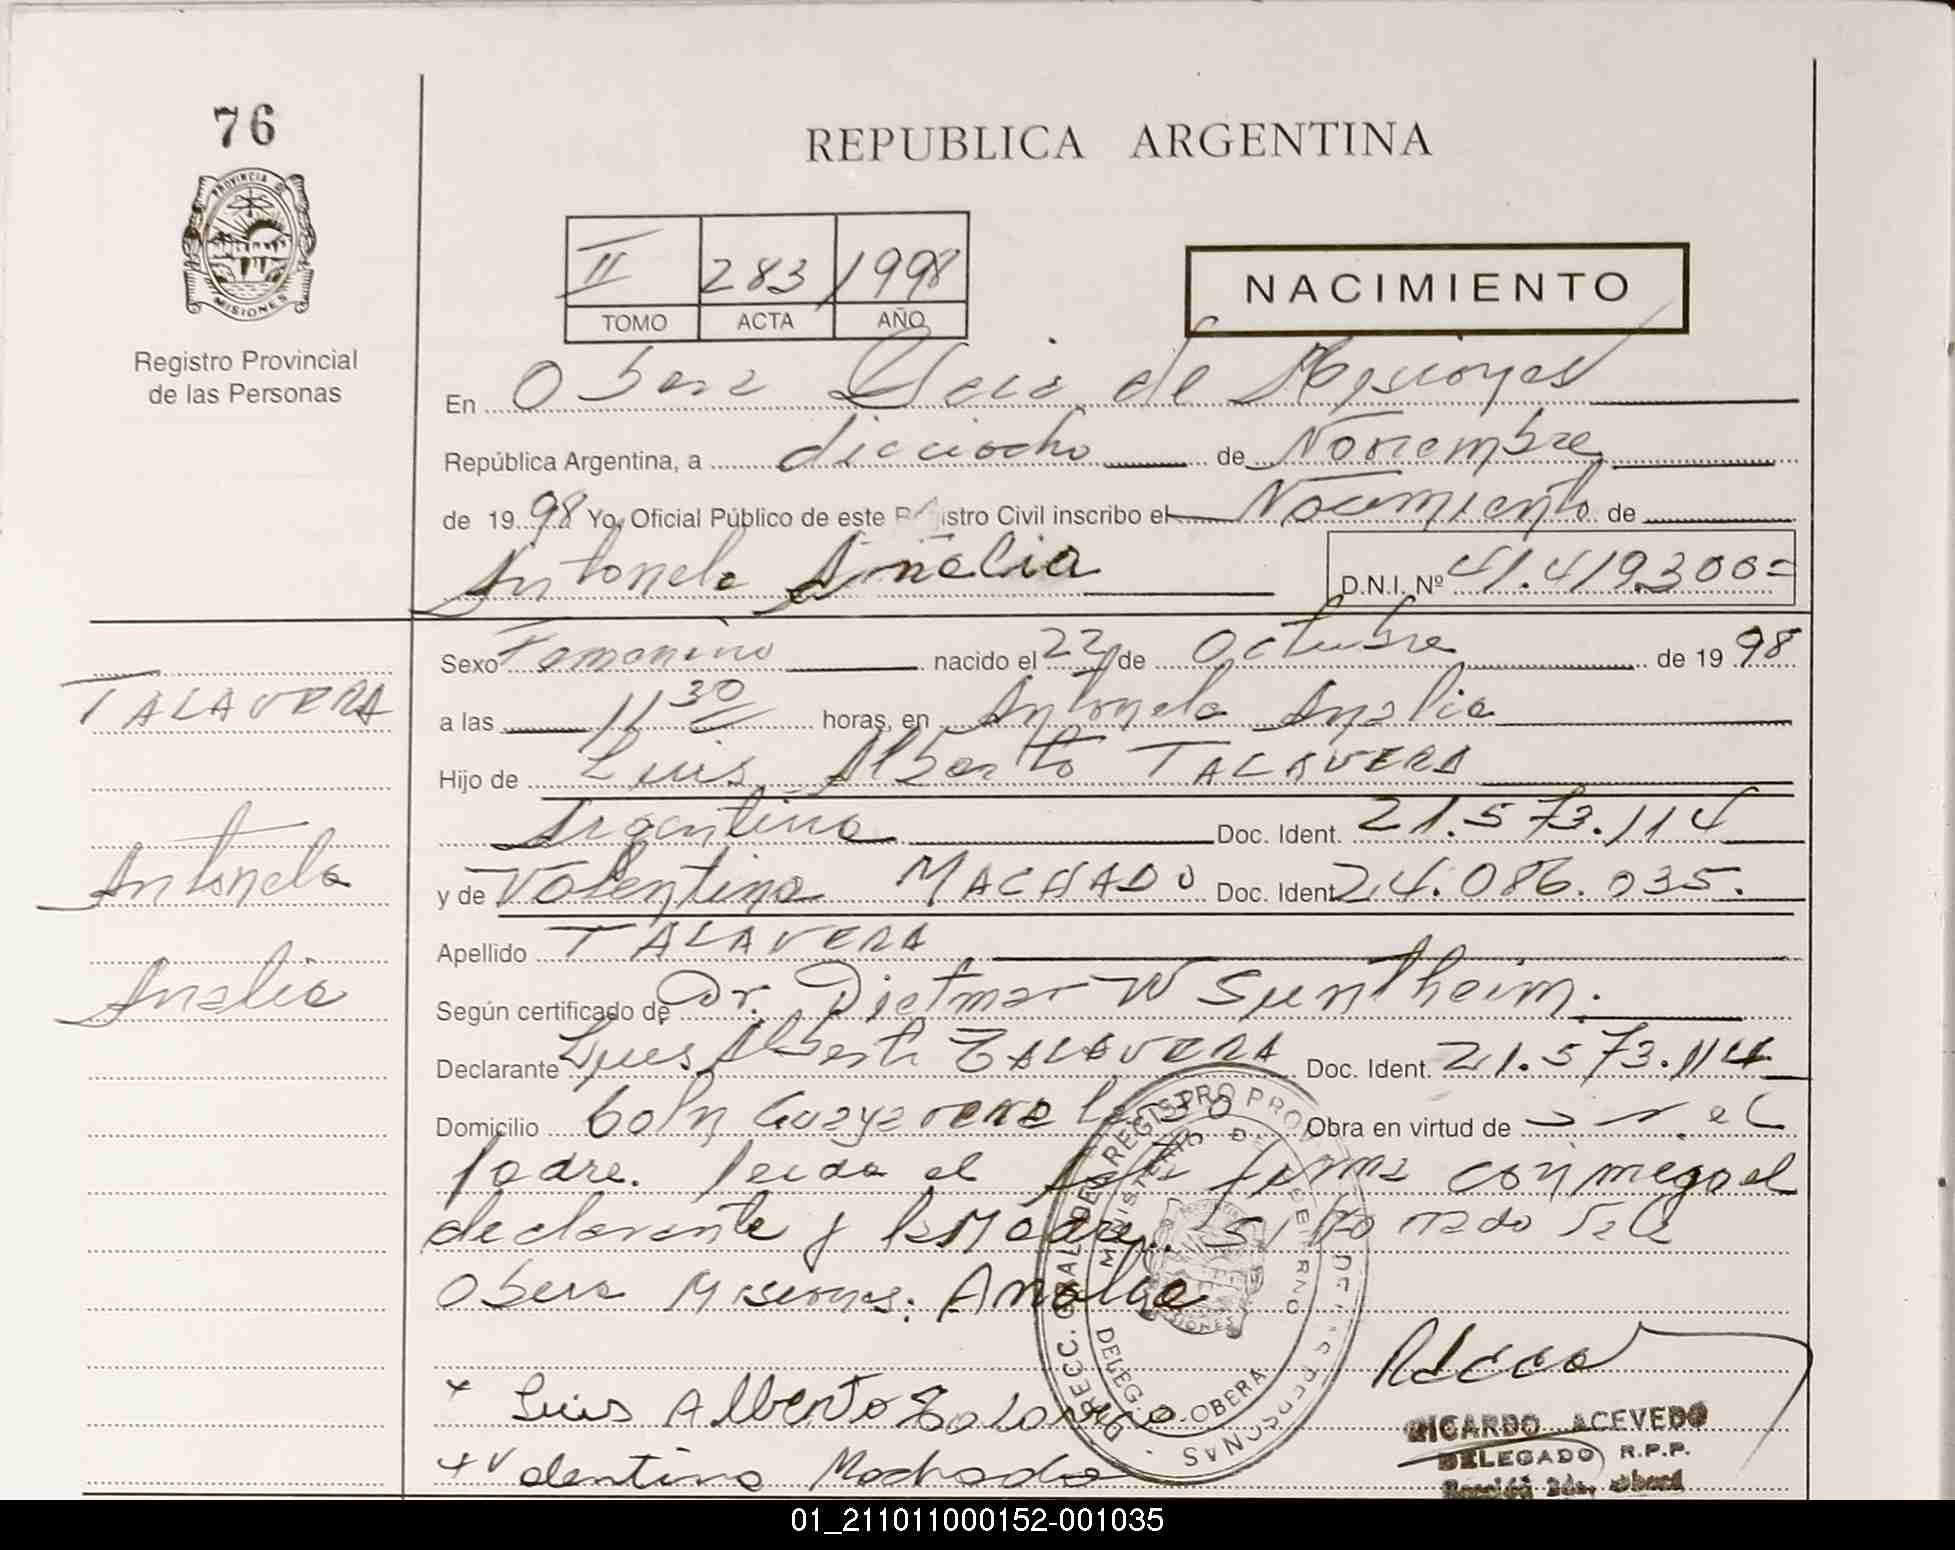 76
REPUBLICA ARGENTINA
PROVINCIA DE
MISIONES
Registro Provincial
de las Personas
II 283 1998
TOMO ACTA AÑO
NACIMIENTO
En Obera Pcia de Misiones
República Argentina, a dieciocho de Noviembre
de 19 98 Yo, Oficial Público de este Registro Civil inscribo el Nacimiento de
Antonela Analia
D.N.I. Nº 41.419.300=
Sexo Femenino nacido el 22 de Octubre de 19 98
a las 11 30 horas, en Antonela Analia
Hijo de Luis Alberto TALAVERA
Argentina Doc. Ident. 21.573.114
y de Valentina MACHADO Doc. Ident 24.086.035.
Apellido TALAVERA
Según certificado de Dr. Dietmar W Suntheim.
Declarante Luis Alberto TALAVERA Doc. Ident. 21.573.114
Domicilio Coln Guayavera Obra en virtud de ser el
padre. leida el Acta firma conmigo el
declarante y la Madre.
Obera Misiones. Analia
TALAVERA
Antonela
Analia
DIRECC. GRAL. DEL REGISTRO PROV. DE LAS PERSONAS
MINISTERIO DE GOBIERNO
MISIONES
DELEG. OBERA
Luis Alberto Talavera
Valentina Machado
RICARDO ACEVEDO
DELEGADO R.P.P.
01_211011000152-001035